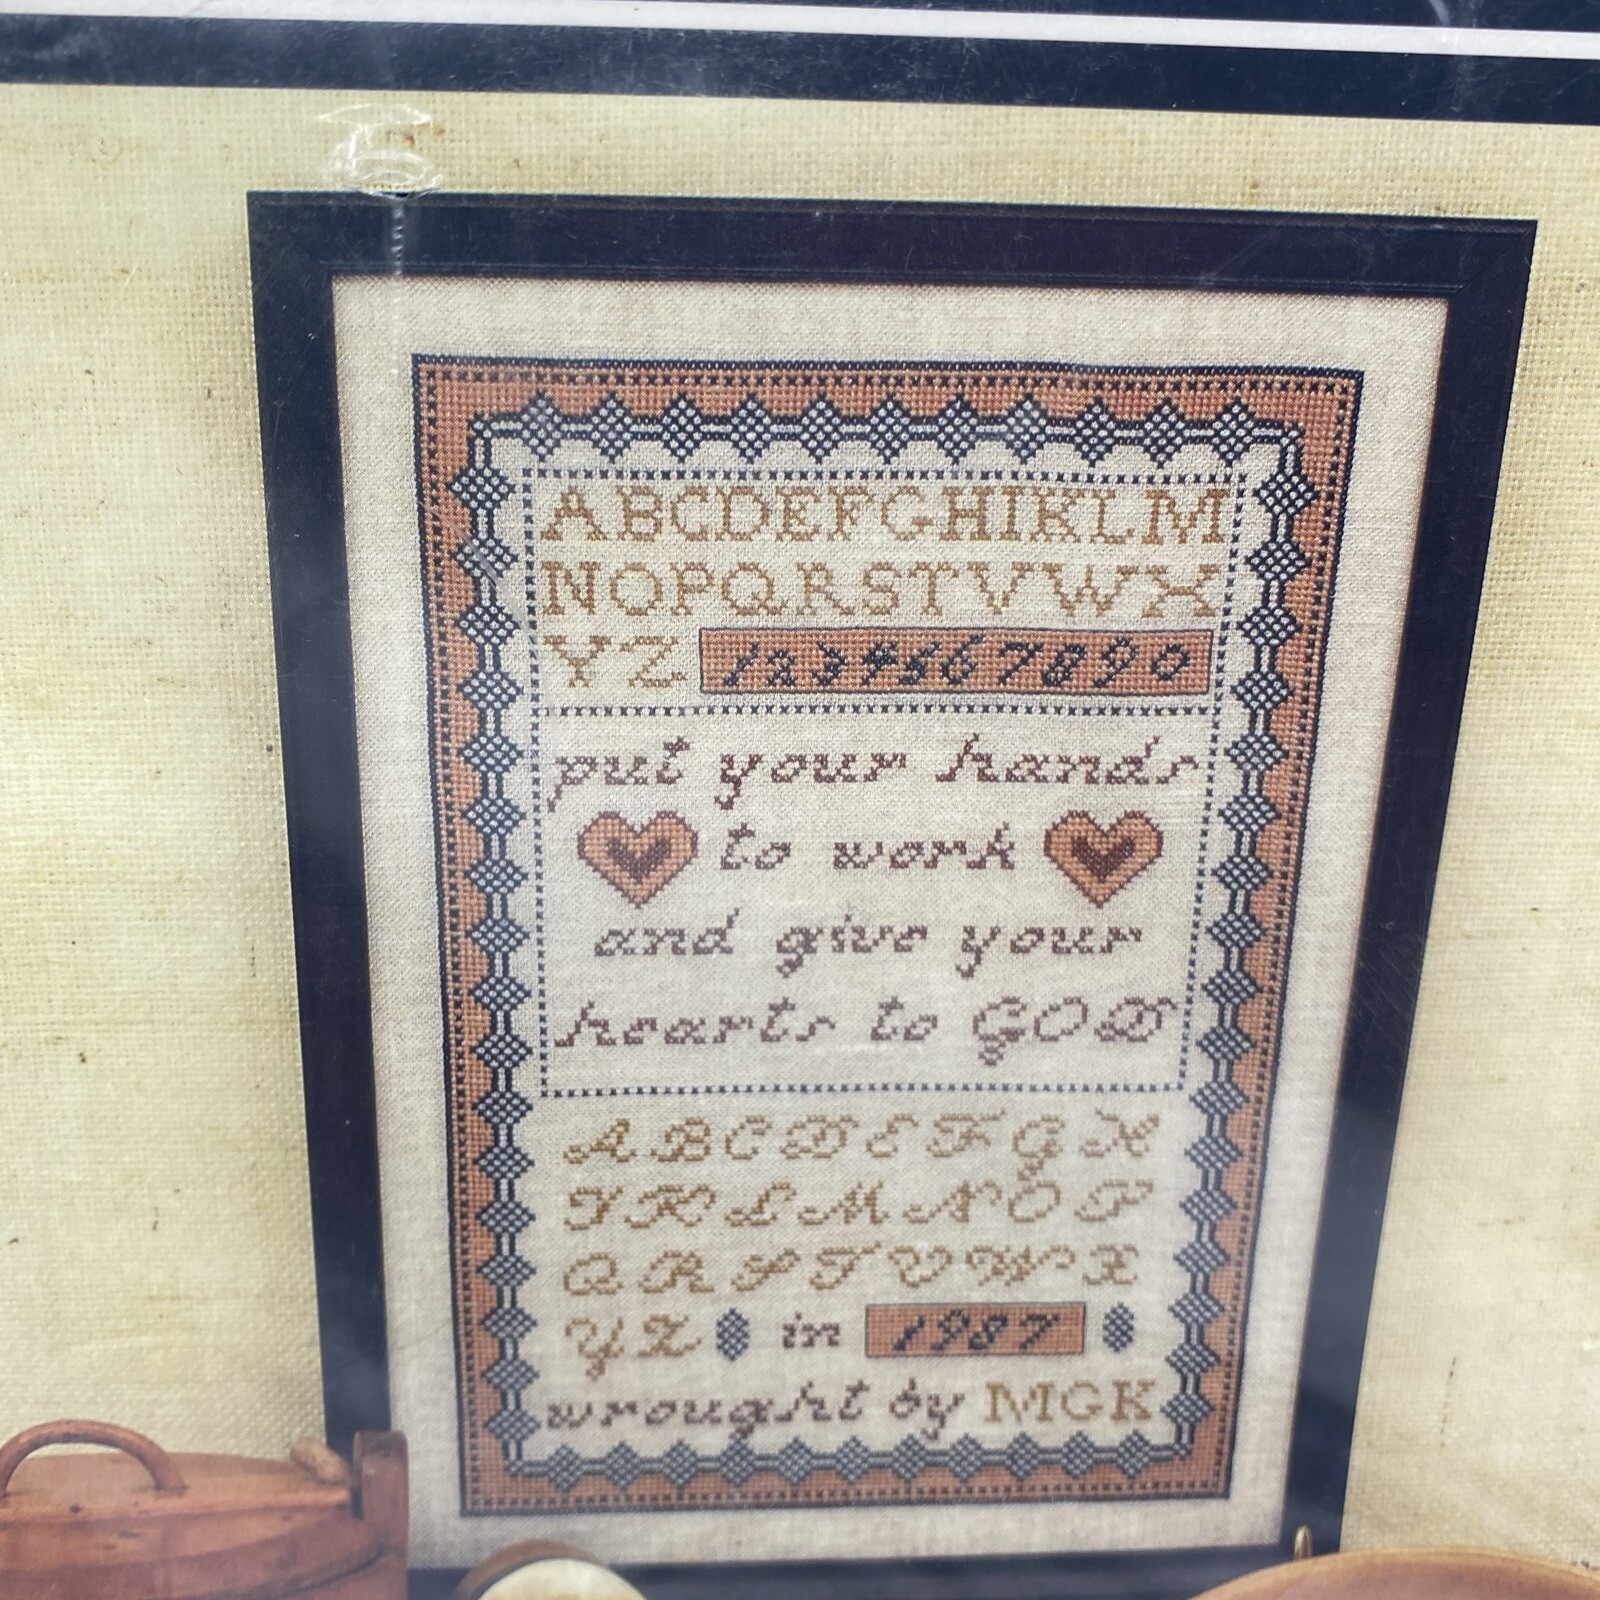 ABCDEFGHIKLM
NOPQRSTVWX
YZ 1234567890
put your hands
to work
and give your
hearts to GOD
ABCDEFGH
IKLMNOP
QRSTVWX
YZ in 1987
wrought by MGK